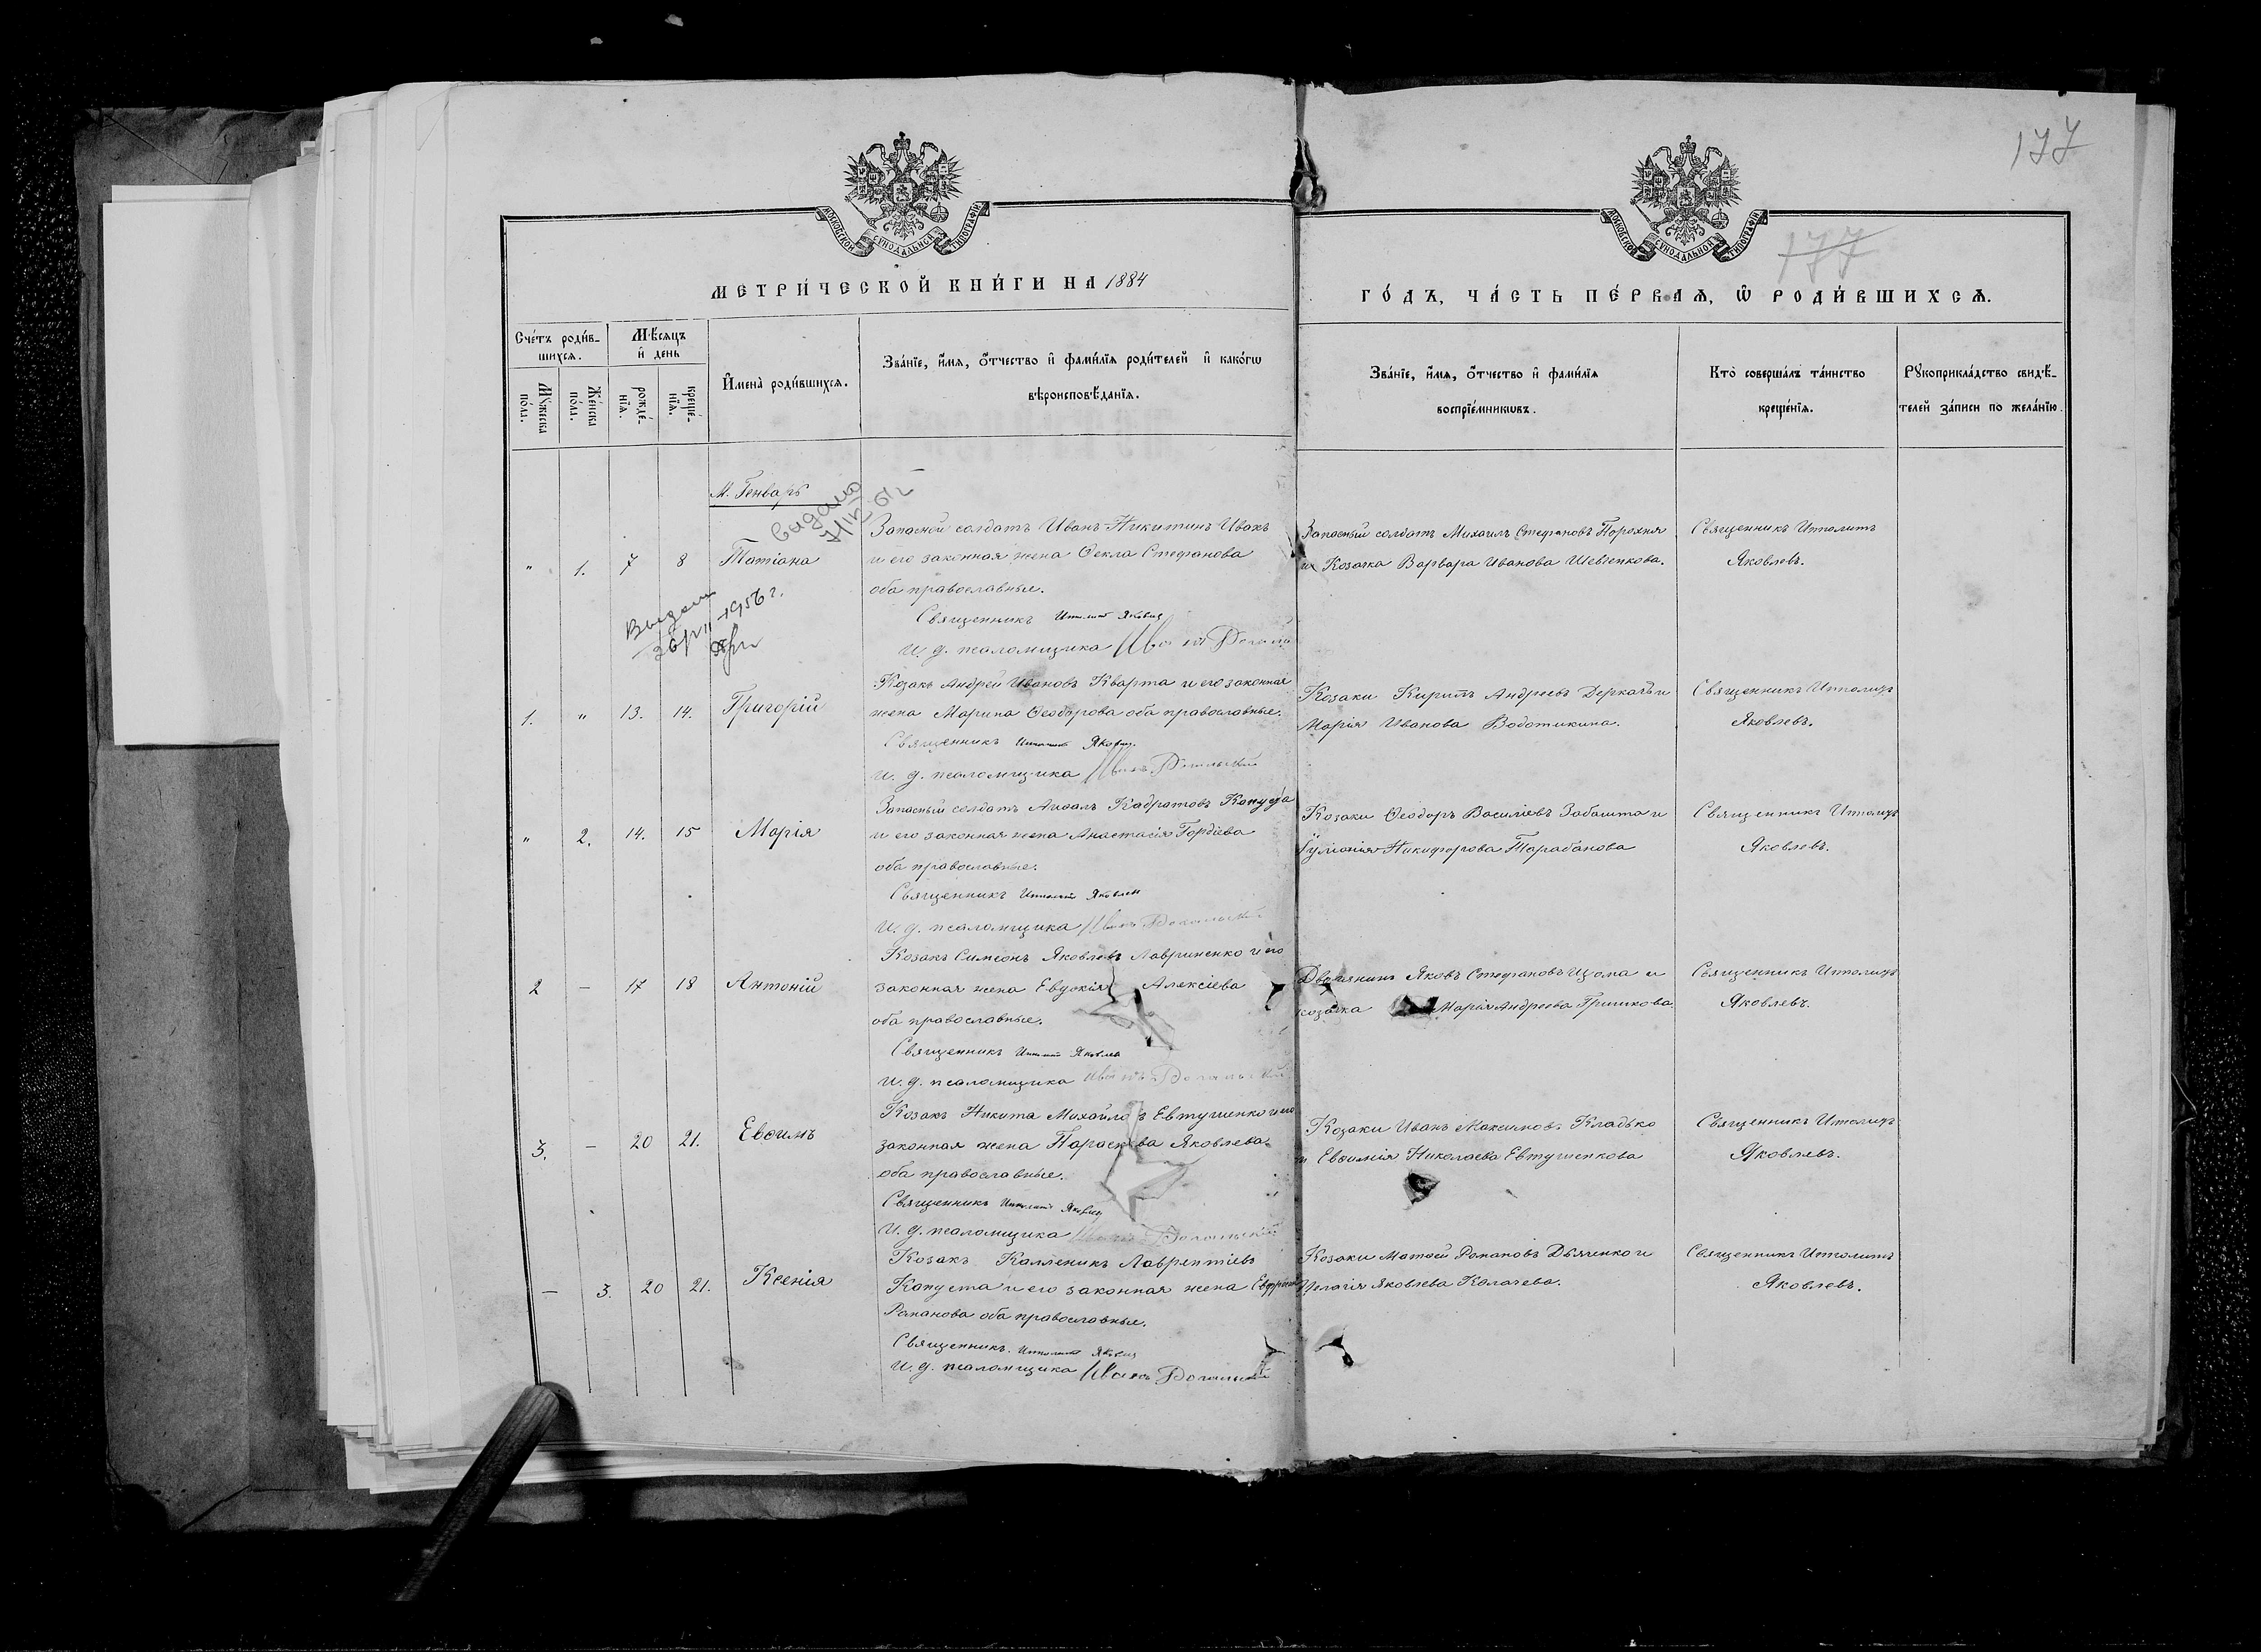 177
МОСКОВСКОЙ СУНОДАЛЬНОЙ ТИПОГРАФІИ
МОСКОВСКОЙ СУНОДАЛЬНОЙ ТИПОГРАФІИ
177
МЕТРИ́ЧЕСКОЙ КНИ́ГИ НА 1884
ГО́ДЪ, ЧА́СТЬ ПЕ́РВАЯ, Ѡ҆ РОДИ́ВШИХСѦ.
Сче́тъ роди́в-
шихся.
Мꙋжеска
по́ла.
Же́нска
по́ла.
Мѣ́сяцъ
и҆ день
рожде́-
нїя.
креще́-
нїя.
И҆мена̀ роди́вшихся.
Зва́нїе, и҆́мя, ѻ҆́тчество и҆ фами́лїя роди́телей и҆ како́гѡ
вѣроисповѣ́данїя.
Зва́нїе, и҆́мя, ѻ҆́тчество и҆ фами́лїя
воспрїе́мникѡвъ.
Кто̀ соверша́лъ та́инство
креще́нїя.
Рꙋкоприкла́дство свидѣ́-
телей за́писи по жела́нїю.
М. Генварь
" 1. 7 8 Татіана
Запасной солдатъ Иванъ Никитинъ Ивакъ
и его законная жена Ѳекла Стефанова
оба православные.
Священникъ Ипполитъ Яковлевъ
И. д. псаломщика Иванъ
Запасный солдатъ Михаилъ Стефановъ Порохня
и Козачка Варвара Иванова Шевченкова.
Священникъ Ипполитъ
Яковлевъ.
1. " 13. 14. Григорій
Козакъ Андрей Ивановъ Кварта и его законная
жена Марина Ѳеодорова оба православные.
Священникъ Ипполитъ Яковлевъ
И. д. псаломщика Иванъ
Козаки Кирилъ Андреевъ Деркачъ и
Марія Иванова Водотикина.
Священникъ Ипполитъ
Яковлевъ.
" 2. 14. 15 Марія
Запасный солдатъ Капуста
и его законная жена Анастасія Гордіева
оба православные.
Священникъ Ипполитъ Яковлевъ
И. д. псаломщика Иванъ
Козаки Ѳеодоръ Василіевъ Забашта и
Іуліанія Никифорова Тарабанова
Священникъ Ипполитъ
Яковлевъ.
2 — 17 18 Антоній
Козакъ Симеонъ Яковлевъ Лавриненко и его
законная жена Евдокія Алексіева
оба православные.
Священникъ Ипполитъ Яковлевъ
И. д. псаломщика Иванъ
Дворянинъ Яковъ Стефановъ и
козачка Марія Андреева Гришкова.
Священникъ Ипполитъ
Яковлевъ.
3. — 20 21. Евѳимъ
Козакъ Никита Михайловъ Евтушенко и его
законная жена Параскева Яковлева
оба православные.
Священникъ Ипполитъ Яковлевъ
И. д. псаломщика
Козаки Иванъ Максимовъ Кладько
и Евѳимія Николаева Евтушенкова
Священникъ Ипполитъ
Яковлевъ.
— 3. 20 21. Ксенія
Козакъ Калленикъ Лаврентіевъ
Капуста и его законная жена
Романова оба православные.
Священникъ Ипполитъ Яковлевъ
И. д. псаломщика Иванъ
Козаки Матѳей Романовъ Дьяченко и
Пелагія Яковлева Калачева.
Священникъ Ипполитъ
Яковлевъ.